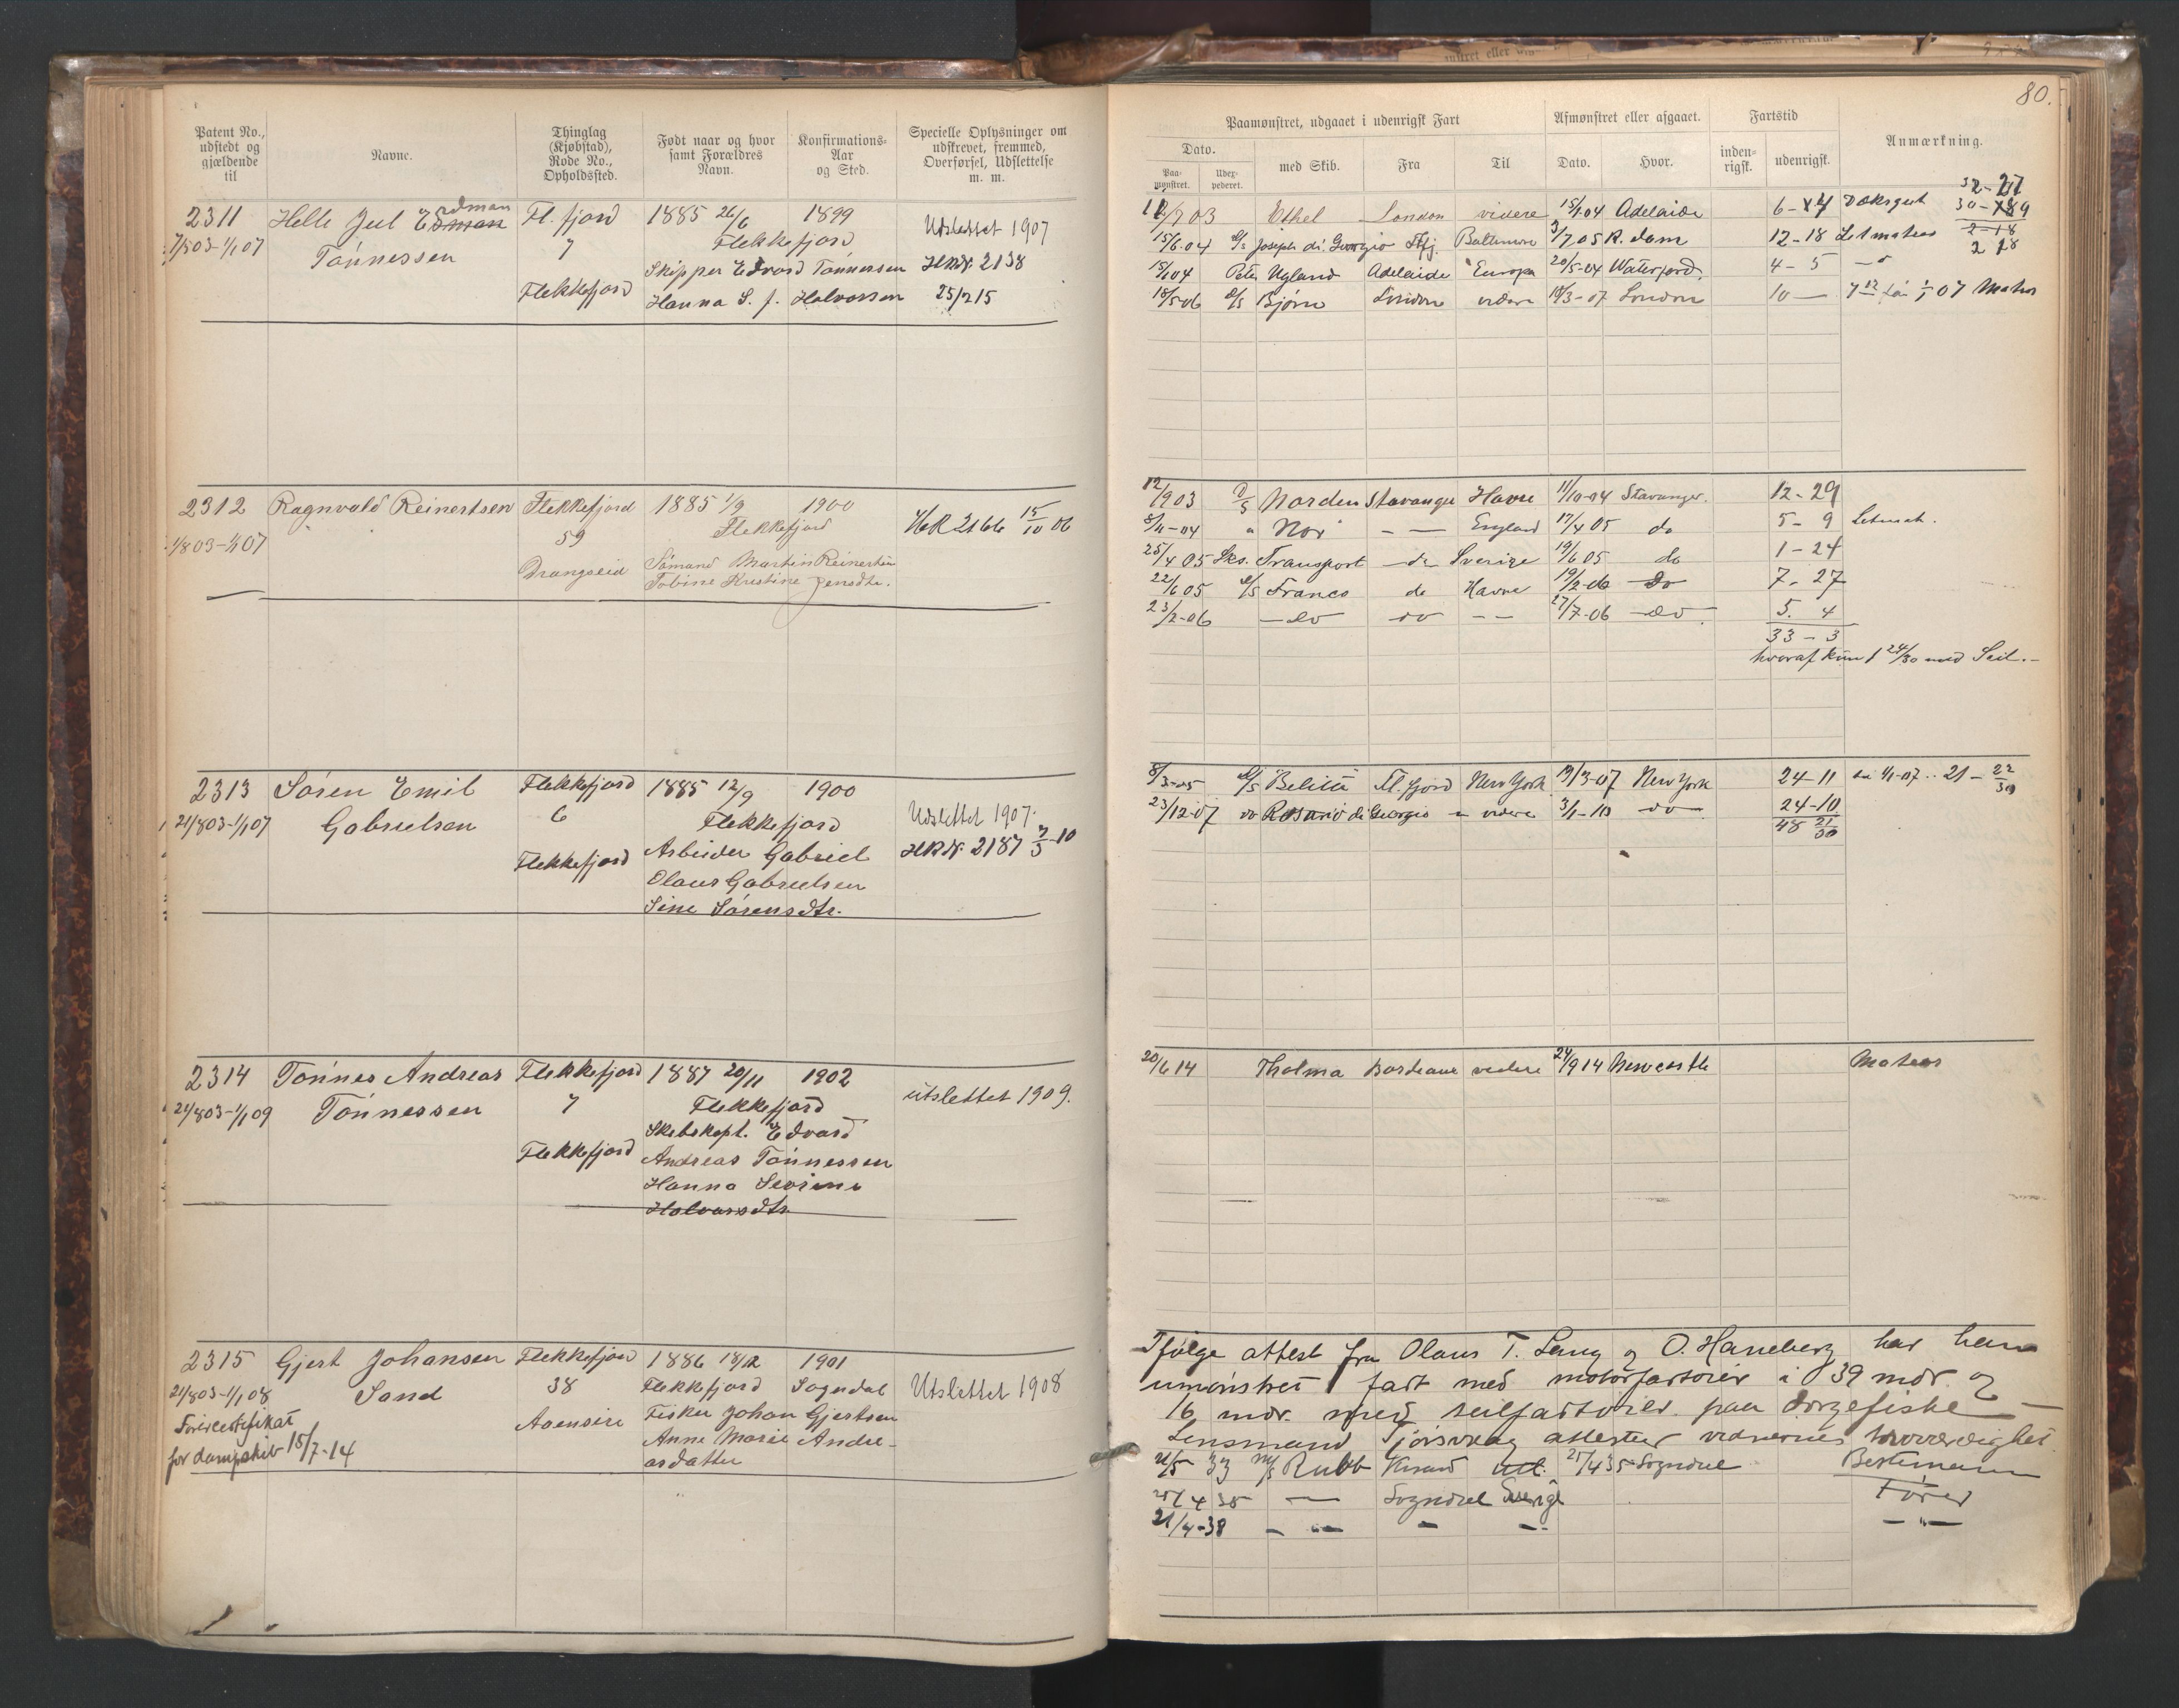 80.
Patent No., udstedt og gjældende til
Navne.
Thinglag (Kjøbstad), Rode No., Opholdssted.
Født naar og hvor samt Forældres Navn.
Konfirmations-Aar og Sted.
Specielle Oplysninger om udskrevet, fremmed, Overførsel, Udslettelse m. m.
Paamønstret, udgaaet i udenrigsk Fart
Afmønstret eller afgaaet.
Fartstid
Anmærkning.
Dato.
med Skib.
Fra
Til
Dato.
Hvor.
inden-rigsk.
udenrigsk.
Paa-mønstret.
Udex-pederet.
2311 Helle Jul Edman Fl. fjord 1885 26/6 1899 Udslettet 1907
7/5 03-1/1 07 Tönnessen 7 Flekkefjord
Skipper Edvard Tönnessen HRNr. 2138
Flekkefjord Hanna S. f. Halvorsen 25/2 15
Ethel London videre 15/1 04 Adelaide 6-
15/6.04 Joseph di Georgio Flfj. Baltimore 3/7 05 R.dam 12-18 Letmatros
15/1 04 Peter Ugland Adelaide Europa 20/5-04 Waterford. 4-5
18/5 06 D/S Bjørn London videre 18/3-07 London 10 — 07 Matros
2312 Ragnvald Reinertsen Flekkefjord 1885 1/9 1900 HR 2166 15/10 06
1/8 03-1/1 07 59 Flekkefjord
Drangeid Sömand Martin Reinertsen
Tobine Kristine Jensdtr.
12/9 03 D/S Norden Stavanger Havre 11/10-04 Stavanger. 12-29
8/11-04 " Nor — — England 17/4 05 do 5-9 Letmatr.
25/4 05 Sks. Transport — do Sverige 19/6 05 do 1-24
22/6 05 D/S Franco do Havre 19/2-06 do 7-27
23/2-06 — do do — — 27/7-06 — do — 5. 4
33-3
hvoraf kun 1 24/30 med Seil.-
2313 Sören Emil Flekkefjord 1885 12/9 1900
21/8 03-1/1 07 Gabrielsen 6 Flekkefjord Udslettet 1907.
Flekkefjord Arbeider Gabriel HRNr. 2187 7/3-10
Olaus Gabrielsen
Sine Sörensdtr.
8/3-05 D/S Belitã Fl.fjord New York 19/3-07 New York 24-11 1/1-07 .. 21-22/30
23/12 07 do Rosario di Georgio videre 3/1-10 do 24-10
48 21/30
2314 Tönnes Andreas Flekkefjord 1887 20/11 1902
21/8 03-1/1 09 Tönnessen 7 Flekkefjord utslettet 1909.
Skibskapt. Edvard
Flekkefjord Andreas Tönnessen
Hanna Sevrine
Halvorsdtr.
20/6 14 Thelma Bordeaux videre 24/9 14 Newcastle Matros
2315 Gjert Johansen Flekkefjord 1886 18/12 1901
21/8 03-1/1 08 Sand 38 Flekkefjord Sogndal Utslettet 1908
Förercertifikat Aaensire Fisker Johan Gjertsen
for dampskib 15/7-14 Anne Marie Andre-
asdatter
Ifölge attest fra Olaus T. Seng og O. Haneberg har han
umönstret fart med motorfartöier i 39 mdr. og
16 mdr. med seilfartöier paa dorgefiske —
Lensmand Fjörsvaag attesterer vidnernes troværdighet.
21/5 33 M/S Rubb Krsand Utl. 25/4 35 Sogndal Bestemann
25/4 35 — Sogndal Sverige Förer
21/4-38 — " — — — — " —